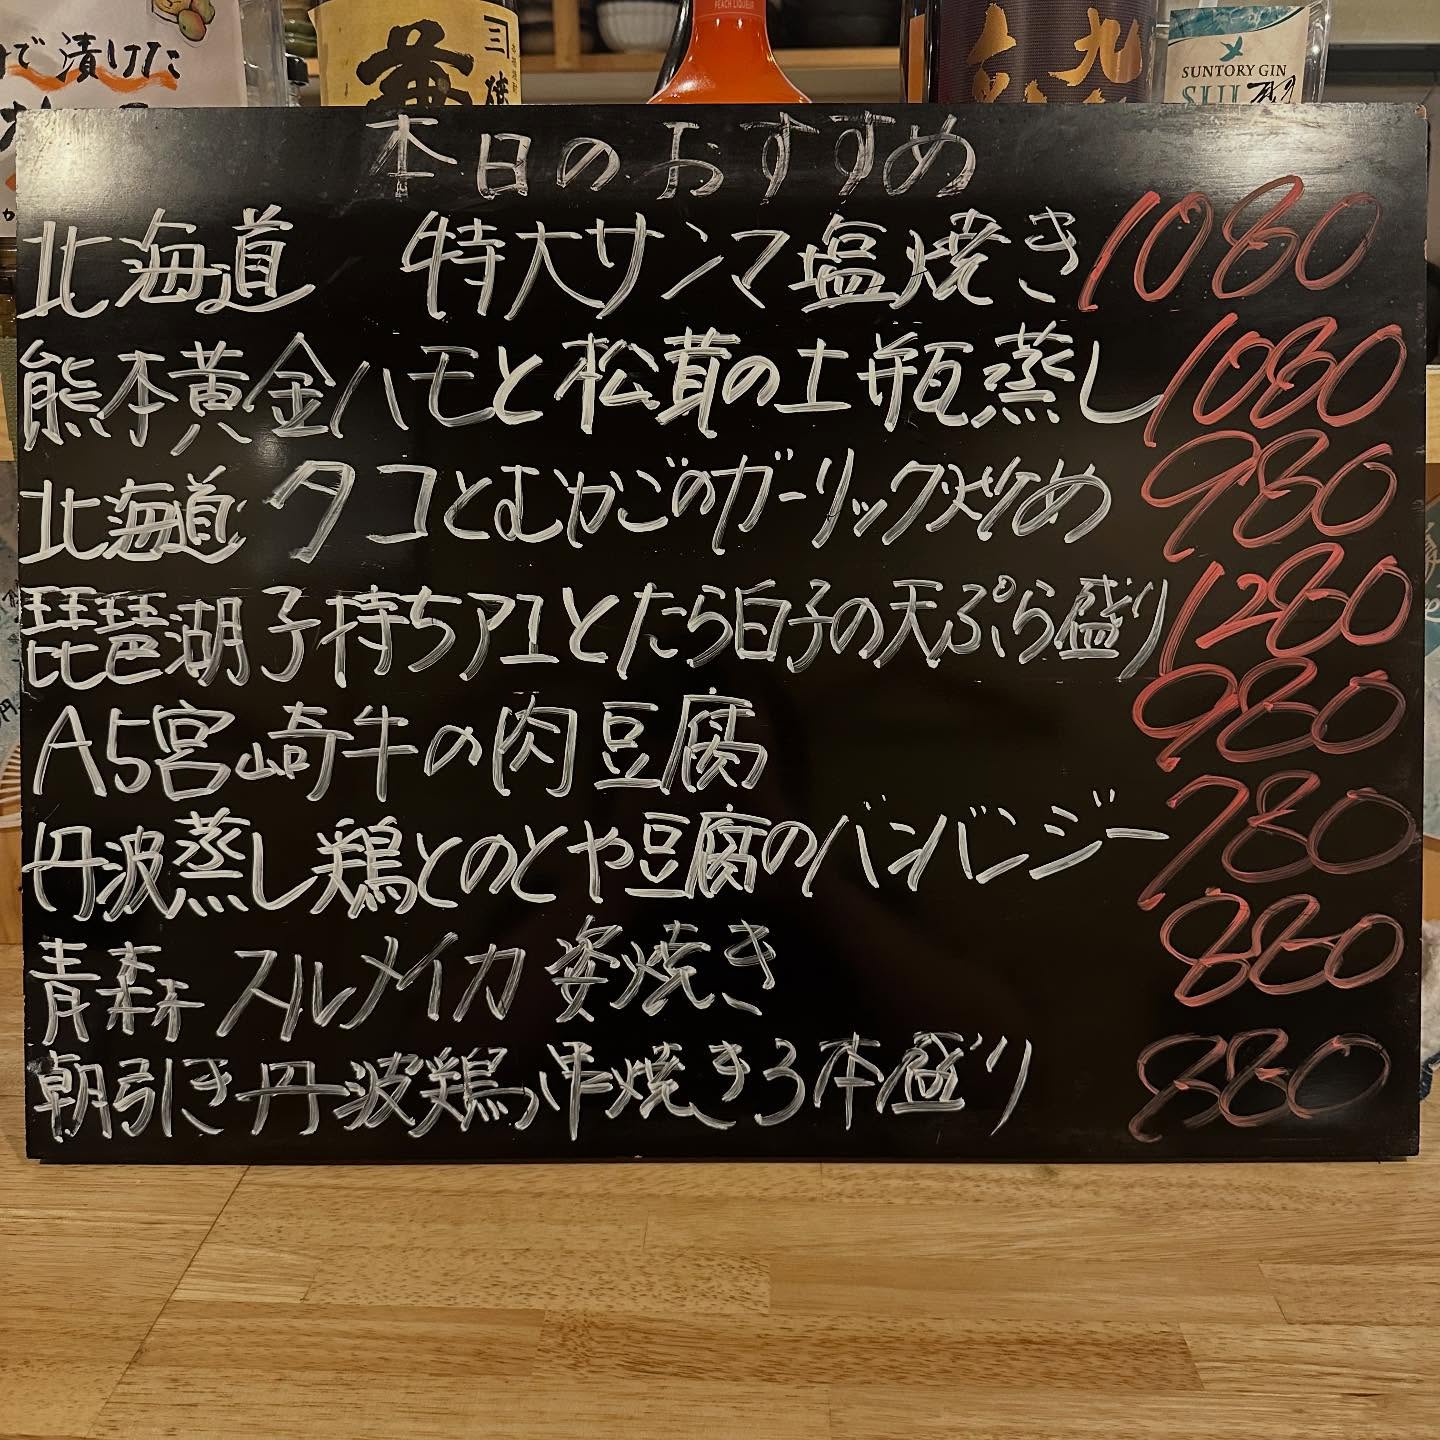 で漬けた
三
兼
PEACH LIQUEUR
九
SUNTORY GIN
本日のおすすめ
北海道 特大サンマ塩焼き 1080
熊本黄金ハモと松茸の土瓶蒸し 1080
北海道 タコとむかごのガーリック炒め 980
琵琶湖子持ちアユとたら白子の天ぷら盛り 1280
A5宮崎牛の肉豆腐 980
丹波蒸し鶏とのとや豆腐のバンバンジー 780
青森 スルメイカ 姿焼き 880
朝引き丹波鶏串焼き3本盛り 880